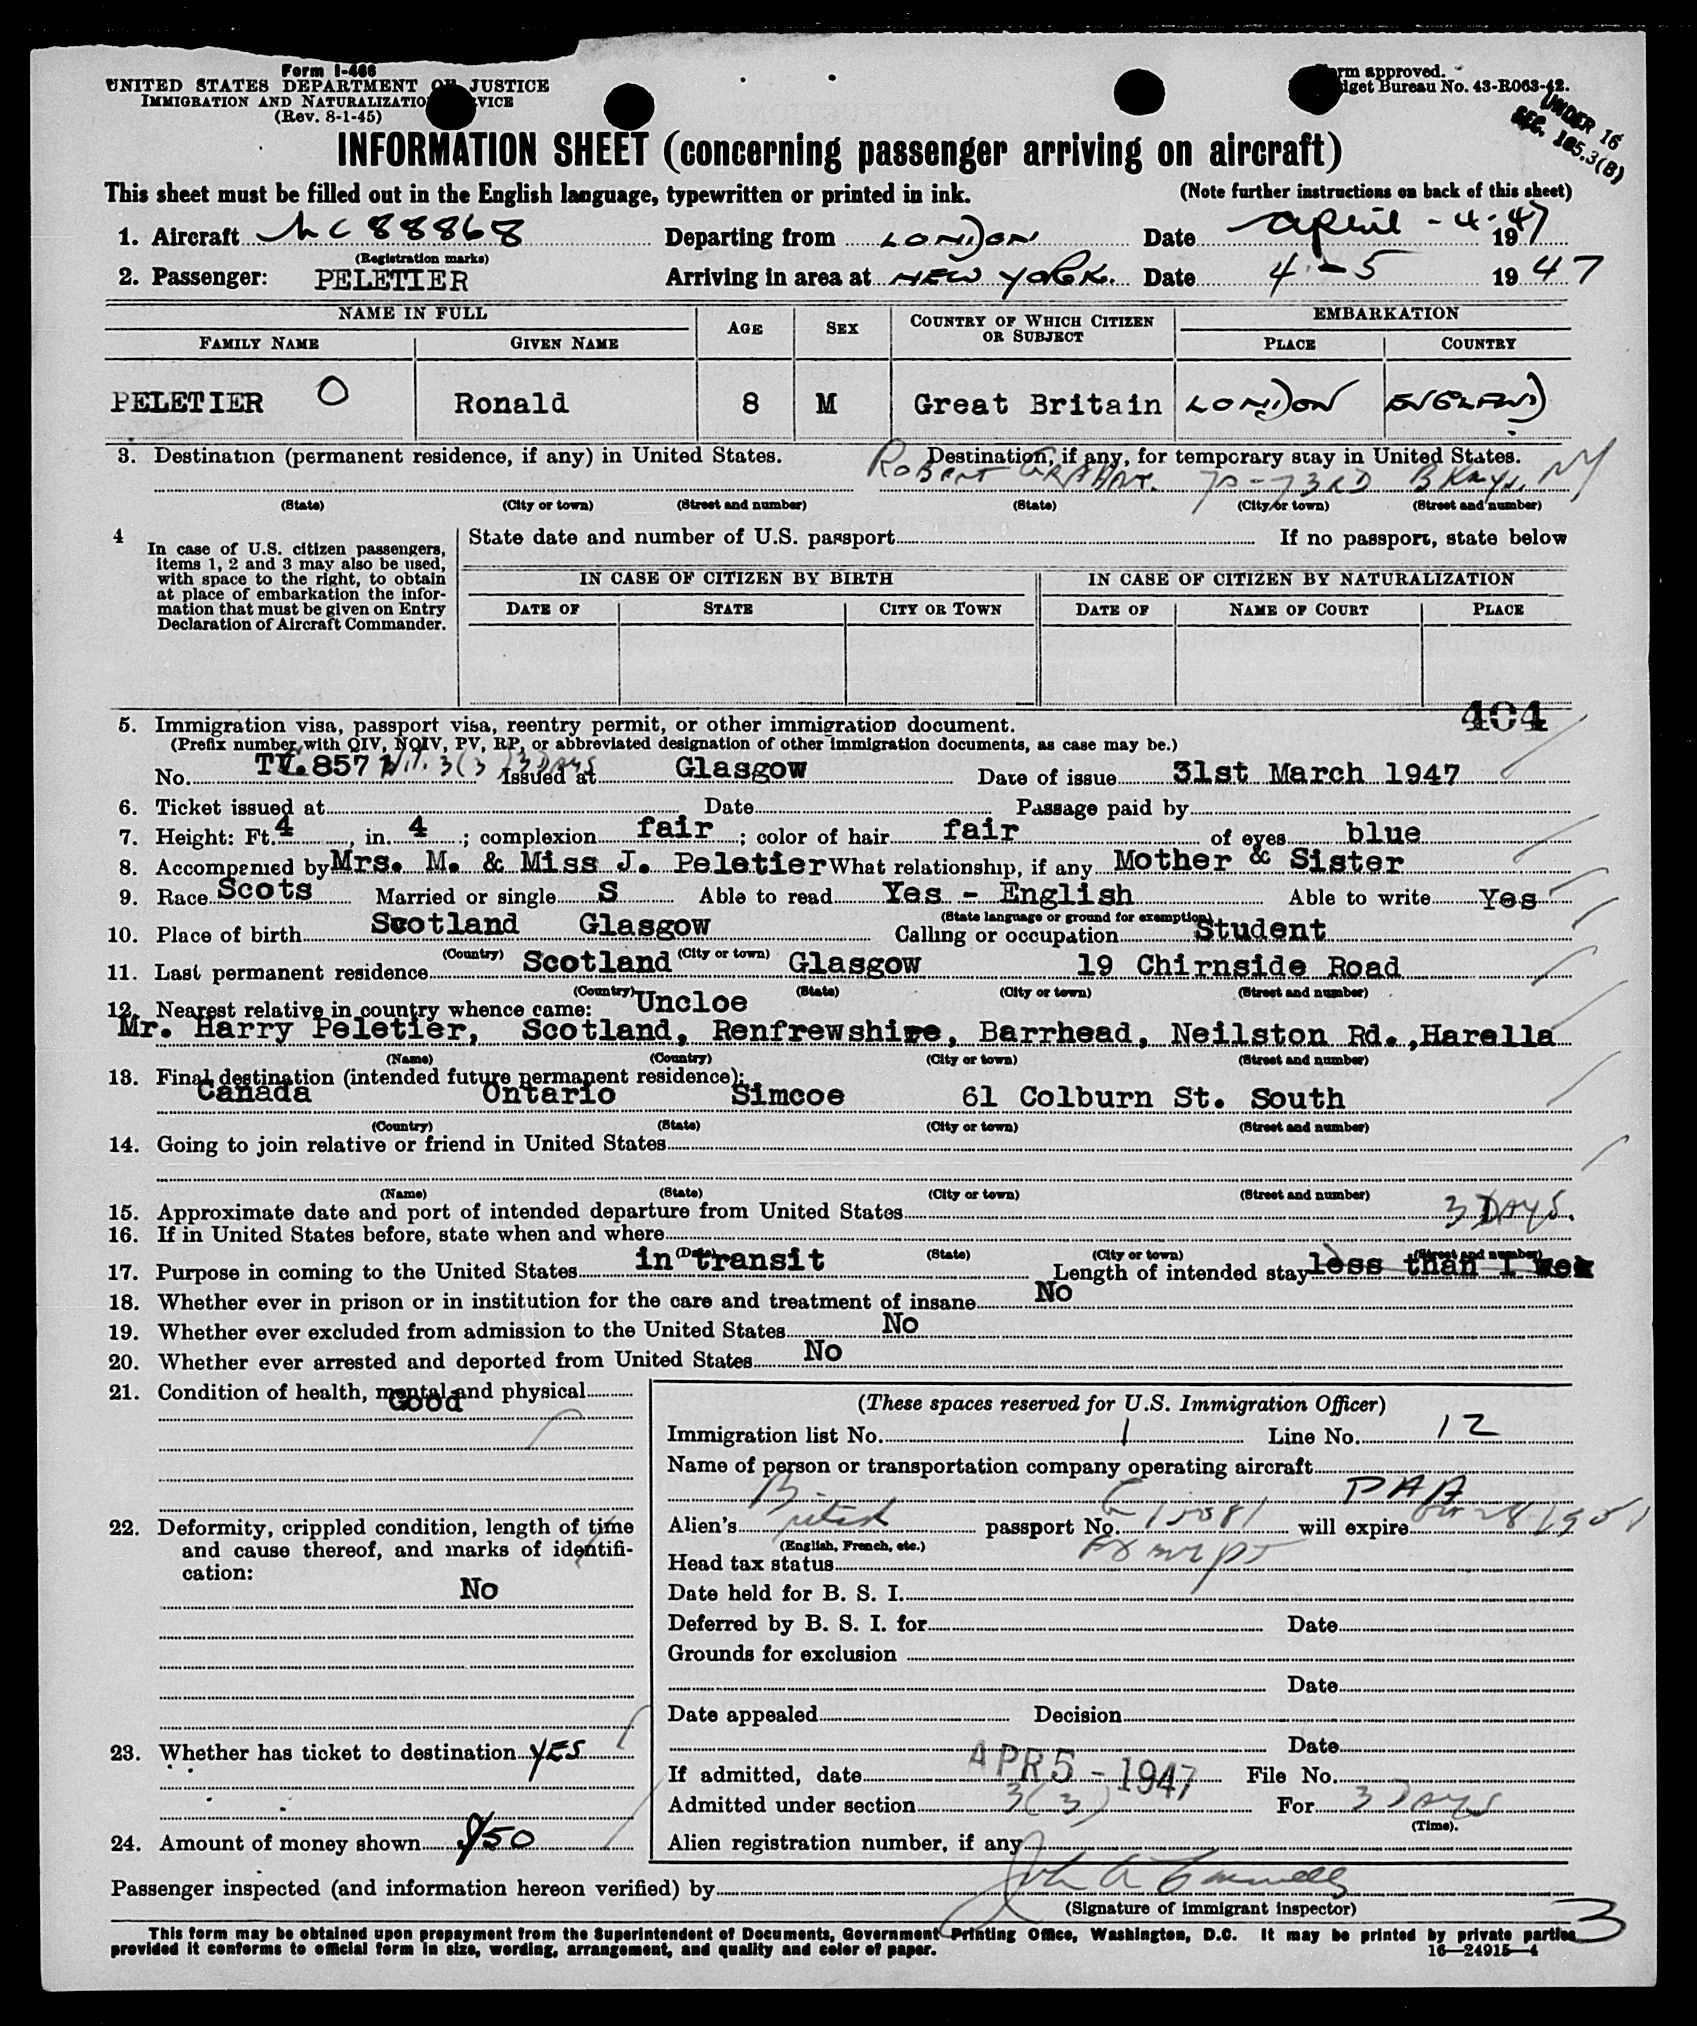 Form I-466
UNITED STATES DEPARTMENT OF JUSTICE
IMMIGRATION AND NATURALIZATION SERVICE
(Rev. 8-1-45)
Form approved.
Budget Bureau No. 43-R063-42.
UNDER 16
SEC. 165.3(B)
INFORMATION SHEET (concerning passenger arriving on aircraft)
This sheet must be filled out in the English language, typewritten or printed in ink. (Note further instructions on back of this sheet)
1. Aircraft NC 88868 Departing from LONDON Date April - 4 - 1947
(Registration marks)
2. Passenger: PELETIER Arriving in area at NEW YORK. Date 4 - 5 1947
NAME IN FULL AGE SEX COUNTRY OF WHICH CITIZEN OR SUBJECT EMBARKATION
FAMILY NAME GIVEN NAME PLACE COUNTRY
PELETIER O Ronald 8 M Great Britain LONDON ENGLAND
3. Destination (permanent residence, if any) in United States. Destination, if any, for temporary stay in United States.
ROBERT 70-73RD BKLYN. NY
(State) (City or town) (Street and number) (State) (City or town) (Street and number)
4 In case of U.S. citizen passengers, items 1, 2 and 3 may also be used, with space to the right, to obtain at place of embarkation the information that must be given on Entry Declaration of Aircraft Commander.
State date and number of U.S. passport If no passport, state below
IN CASE OF CITIZEN BY BIRTH IN CASE OF CITIZEN BY NATURALIZATION
DATE OF STATE CITY OR TOWN DATE OF NAME OF COURT PLACE
404
5. Immigration visa, passport visa, reentry permit, or other immigration document.
(Prefix number with QIV, NQIV, PV, RP, or abbreviated designation of other immigration documents, as case may be.)
No. TV.857 3(3) 3 DAYS Issued at Glasgow Date of issue 31st March 1947
6. Ticket issued at Date Passage paid by
7. Height: Ft. 4, in. 4; complexion fair; color of hair fair of eyes blue
8. Accompanied by Mrs. M. & Miss J. Peletier What relationship, if any Mother & Sister
9. Race Scots Married or single S Able to read Yes - English Able to write Yes
(State language or ground for exemption)
10. Place of birth Scotland Glasgow Calling or occupation Student
(Country) (City or town)
11. Last permanent residence Scotland Glasgow 19 Chirnside Road
(Country) (State) (City or town) (Street and number)
12. Nearest relative in country whence came: Uncloe
Mr. Harry Peletier, Scotland, Renfrewshire, Barrhead, Neilston Rd., Harella
(Name) (Country) (City or town) (Street and number)
13. Final destination (intended future permanent residence):
Canada Ontario Simcoe 61 Colburn St. South
(Country) (State) (City or town) (Street and number)
14. Going to join relative or friend in United States
(Name) (State) (City or town) (Street and number)
15. Approximate date and port of intended departure from United States 3 DAYS.
16. If in United States before, state when and where
(Date) (State) (City or town) (Street and number)
17. Purpose in coming to the United States in transit Length of intended stay less than 1 wek
18. Whether ever in prison or in institution for the care and treatment of insane No
19. Whether ever excluded from admission to the United States No
20. Whether ever arrested and deported from United States No
21. Condition of health, mental and physical
Good
22. Deformity, crippled condition, length of time
and cause thereof, and marks of identifi-
cation:
No
23. Whether has ticket to destination YES
24. Amount of money shown $50
(These spaces reserved for U.S. Immigration Officer)
Immigration list No. 1 Line No. 12
Name of person or transportation company operating aircraft
PAA
Alien's British passport No. will expire
(English, French, etc.)
Head tax status Exempt
Date held for B. S. I.
Deferred by B. S. I. for Date
Grounds for exclusion
Date
Date appealed Decision
Date
If admitted, date APR 5 - 1947 File No.
Admitted under section 3(3) For 3 Days
(Time).
Alien registration number, if any
Passenger inspected (and information hereon verified) by
(Signature of immigrant inspector)
3
This form may be obtained upon prepayment from the Superintendent of Documents, Government Printing Office, Washington, D.C. It may be printed by private parties
provided it conforms to official form in size, wording, arrangement, and quality and color of paper. 16—24915-4